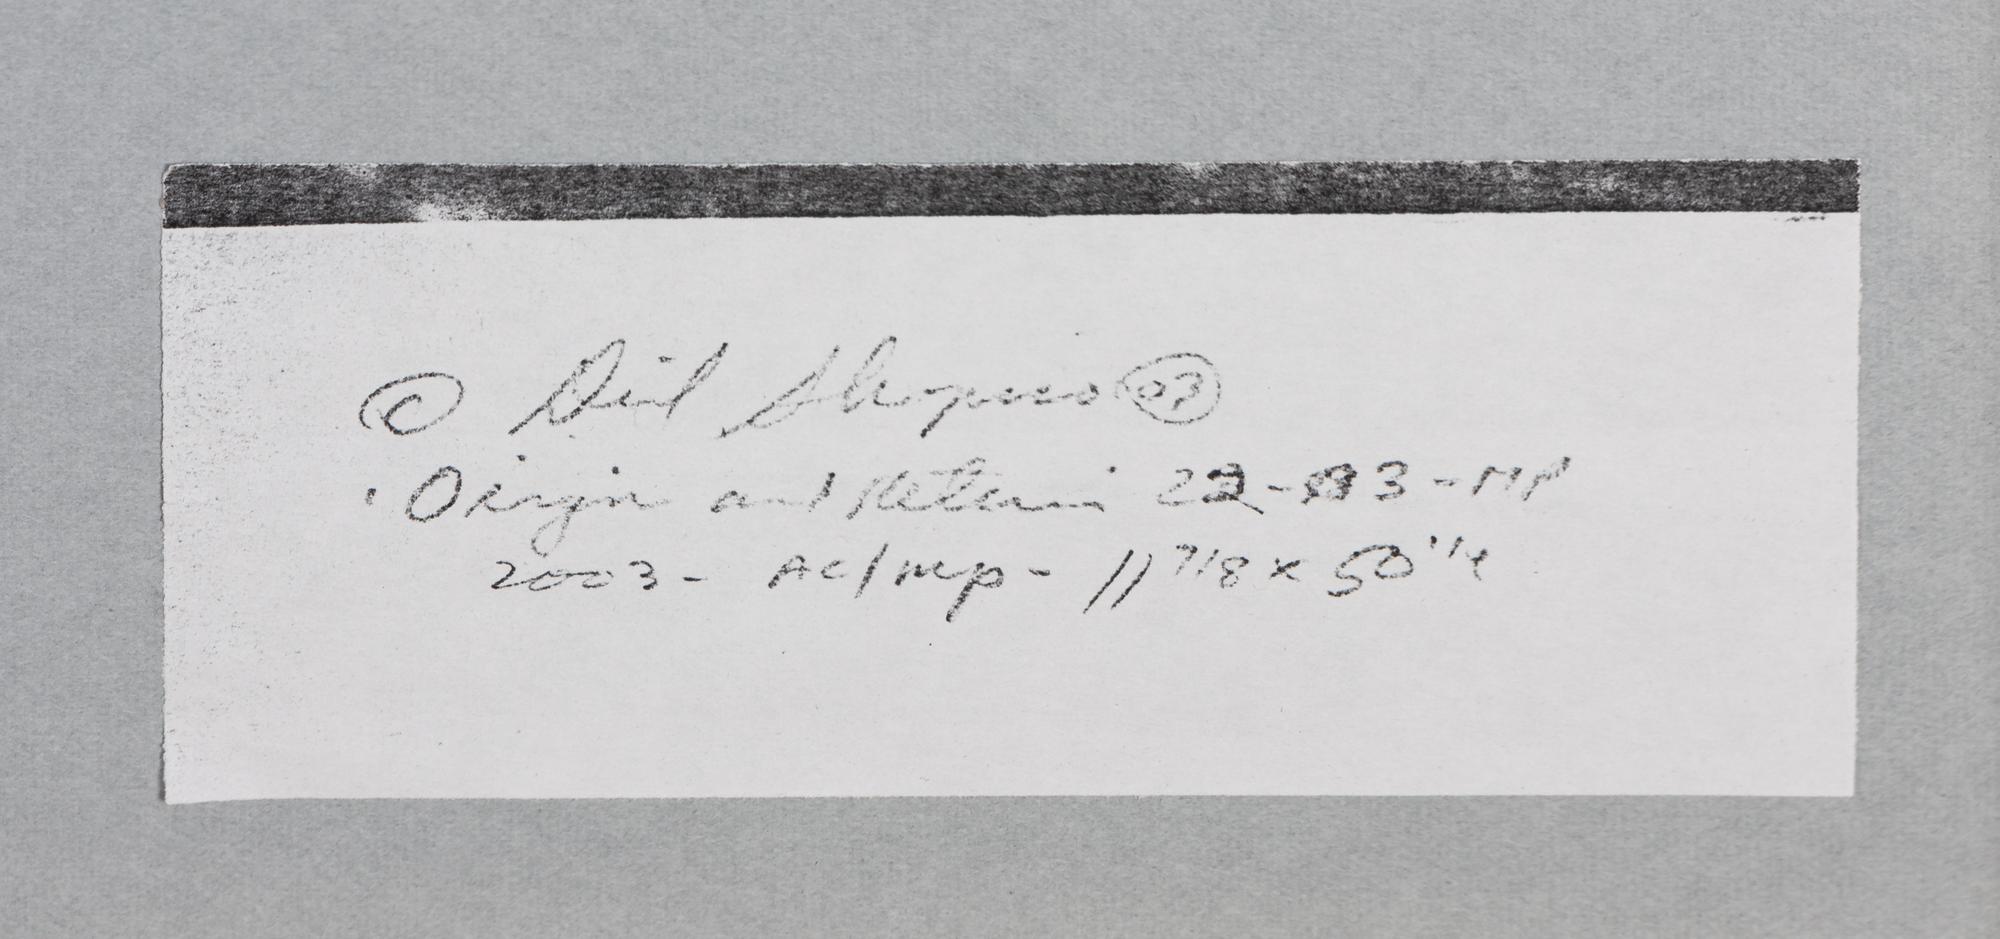 © David Shapiro 03
Origin and Return 22-33-MP
2003 - AC/MP - 11 7/8 x 50 1/4